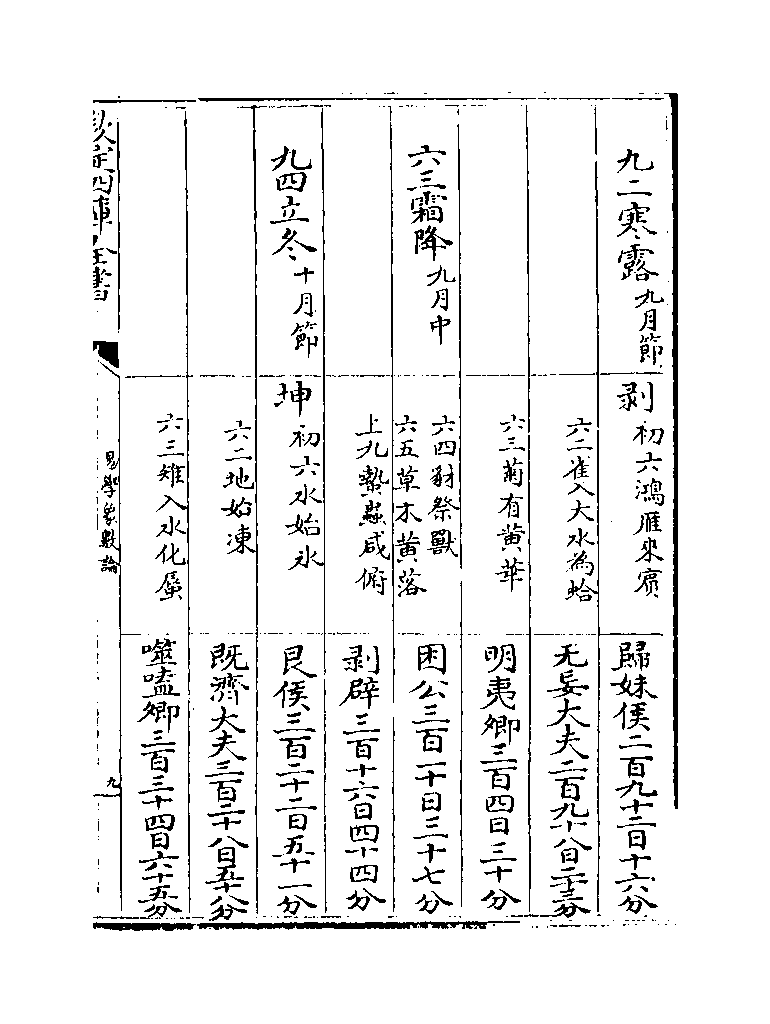 九二寒露九月節
剥初六鴻雁来賔
歸妹侯二百九十二日十六分
六二雀入大水為蛤
无妄大夫二百九十八日二十三分
六三菊有黄華
明夷卿三百四日三十分
六三霜降九月中
六四豺祭獸
六五草木黄落
困公三百一十日三十七分
上九蟄蟲咸俯
剥辟三百十六日四十四分
九四立冬十月節
坤初六水始氷
艮侯三百二十二日五十一分
六二地始凍
既濟大夫三百二十八日五十八分
六三雉入水化蜃
噬嗑卿三百三十四日六十五分
欽定四庫全書
易學象數論
九